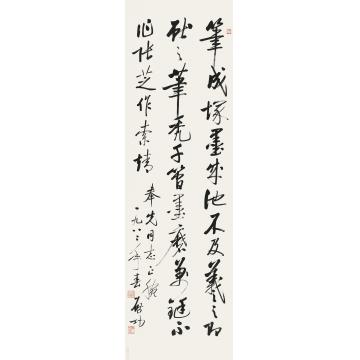 筆成塚墨成池不及羲之即
献之筆禿千管墨磨萬鋌不
作张芝作索靖
奉先同志正腕
一九八二年春 启功